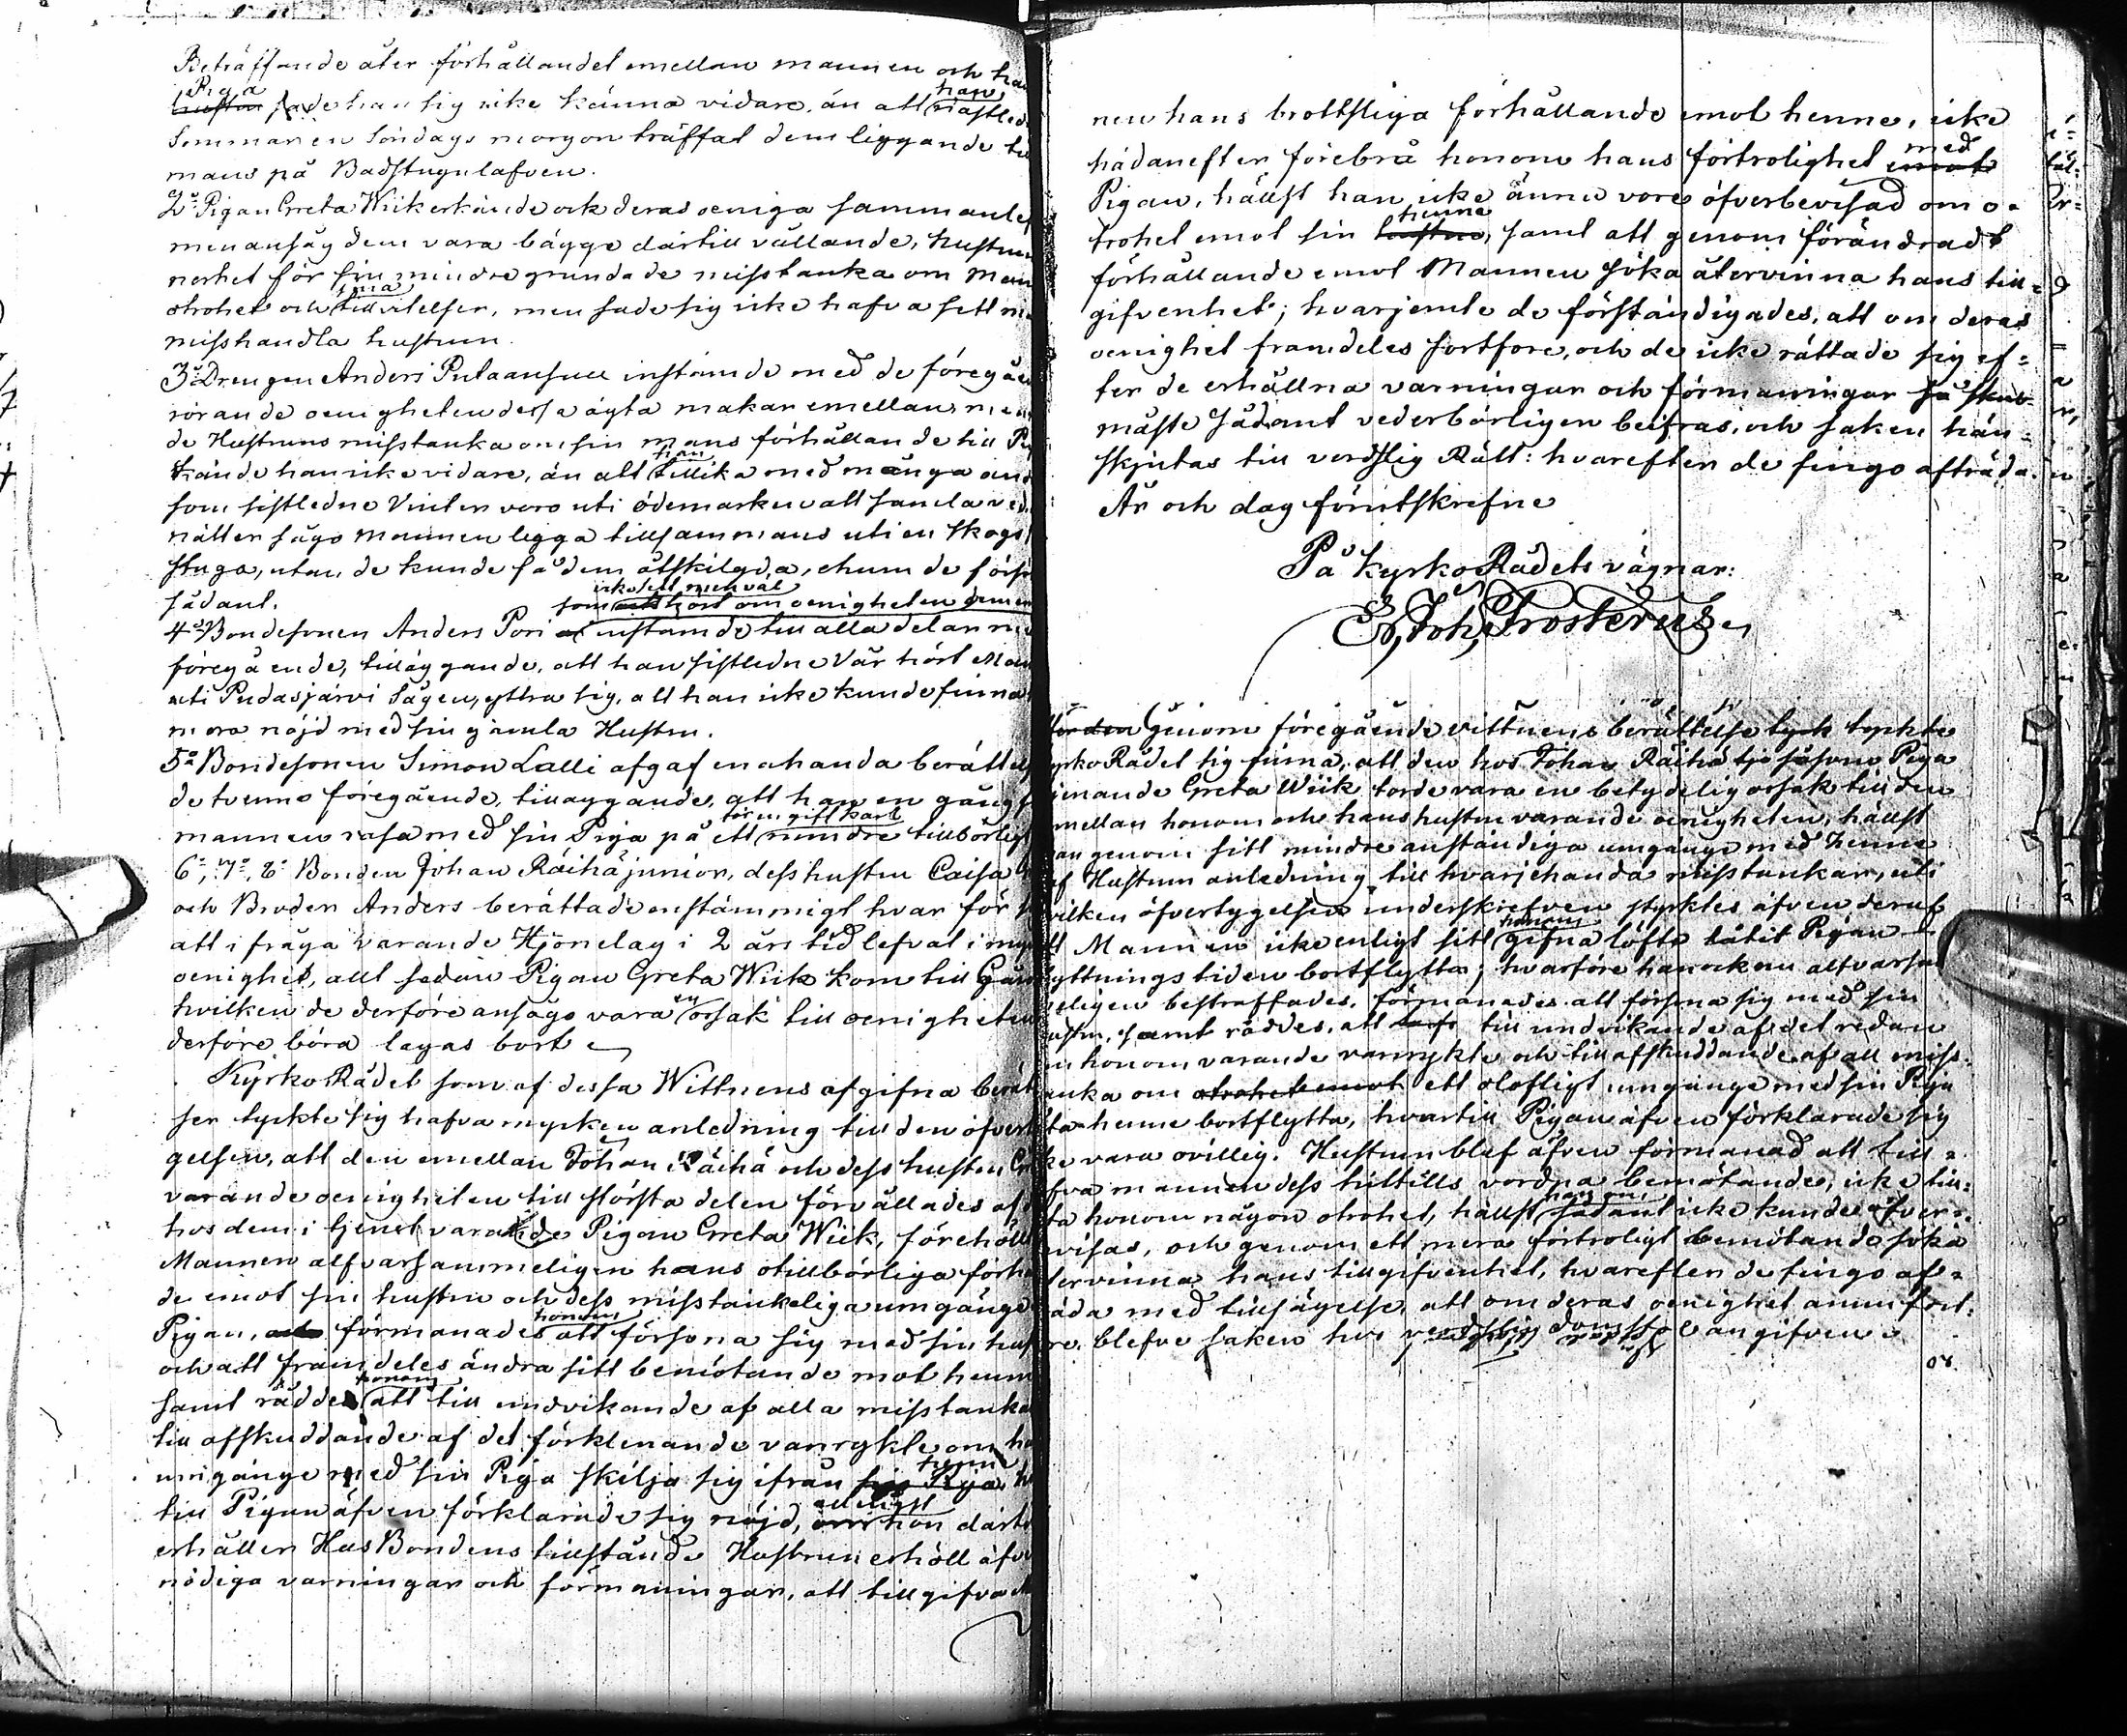 Beträffande åter förhållandet emellan mannen och ha
Piga
hustru sade han sig icke känna vidare, än att han nästled
Sommar en Söndags morgon träffat dem liggande til
mans på Badstugulafven.
2:o Pigan Greta Wiik erkände ock deras oeniga sammanlef
men ansåg dem vara bägge därtill vållande, hustrun
nerhet för sin mindre grundade misstanka om Man
otrohet och sina tillvitelser, men sade sig icke hafva sett m
misshandla hustrun.
3:o Drengen Anders Putaansuu instämde med de föregåen
rörande oenigheten desse ägta makar emellan, men
de Hustruns misstanka om sin mans förhållande till Pi
kände han icke vidare, än att han tillika med många and
som sistledne Vinter voro uti ödemarken att samla ved
nätter sågo mannen ligga tillsammans uti en skogs
stuga, utan de kunde få dem åtskilgda, ehuru de förs
sådant.
icke sett men väl
som hört om oenigheten
4:o Bondesonen Anders Pori instämde till alla delar m
föregående, tilläggande, att han sistledne Vår hört Man
uti Pudasjärvi Sågen, yttra sig, att han icke kunde finna
mera nöjd med sin gamla Hustru.
5:o Bondesonen Simon Lalli afgaf enahanda berättels
de tvenne föregående, tilläggande, att han en gång s
mannen rasa med sin Piga på ett för en gift karl mindre tillbörligt
6:o, 7:o, 8:o Bonden Johan Räihä junior, dess hustru Caisa
och Broder Anders berättade enstämmigt hvar för s
att i fråga varande Hjonelag i 2 års tid lefvat i myc
oenighet, allt sedan Pigan Greta Wiik kom till Går
hvilken de derföre ansågo vara en orsak till oenigheten
derföre böra lagas bort
Kyrko-Rådet som af dessa Wittnens afgifna berät
ser tyckte sig hafva mycken anledning till den öfvert
gelsen, att den emellan Johan Räihä och dess hustru
varande oenigheten till största delen förvållades af
hos dem i tjenst varande Pigan Greta Wiik, förehöll
Mannen alfvarsammeligen hans otillbörliga förhå
de emot sin hustru och dess misstänkeliga umgänge
Pigan, förmanades honom att försona sig med sin hus
och att framdeles ändra sitt bemötande mot henne
samt rådde honom att till undvikande af alla misstanka
till afskuddande af det förklenande vanrykte om ha
umgänge med sin Piga skilja sig ifrån henne sin Piga,
till Pigan äfven förklarade sig nöjd, allenast om hon därtil
erhåller HusBondens tillstånd. Hustrun erhöll äfv
nödiga varningar och förmaningar, att tillgifva
nen hans brottsliga förhållande emot henne, icke
hädanefter förebrå honom hans förtrolighet med emot
Pigan, hälst han icke ännu vore öfverbevisad om o-
trohet emot sin henne hustru, samt att genom förändradt
förhållande emot Mannen söka återvinna hans till-
gifvenhet; hvarjemte de förständigades, att om deras
oenighet framdeles fortfore, och de icke rättade sig ef-
ter de erhållna varningar och förmaningar så skul-
måste sådant vederbörligen beifras, och saken hän-
skjutas till verdslig Rätt: hvarefter de fingo afträda.
År och dag förutskrefne
På Kyrko-Rådets vägnar:
Er. Joh. Frosterus.
för den Genom föregående vittnens berättelse tyck tyckte
yrko Rådet sig finna, att den hos Johan Räihä Piga
jenande Greta Wiik torde vara en betydelig orsak till den
mellan honom och hans hustru varande oenigheten, hälst
an genom sitt mindre anständiga umgänge med henne
af Hustrun anledning till hvarjehanda misstankar, uti
vilken öfvertygelsen underskrefven styrktes äfven deraf
tt Mannen icke enligt sitt honom gifna löfte låtit Pigan
lyttningstiden bortflytta; hvarföre han ock nu alfvarsam
meligen bestraffades, förmanades att försona sig med sin
ustru, samt råddes, att till undvikande af det redan
m honom varande vanrykte och till afskuddande af all miss-
anka om otrohet emot ett olofligt umgänge med sin Piga
ta henne bortflytta, hvartill Pigan äfven förklarade sig
ke vara ovillig. Hustrun blef äfven förmanad att till-
fva mannen dess hittills vordna bemötande, icke till-
ta honom någon otrohet, hälst han om sådant icke kunde öfver-
visas, och genom ett mera förtroligt bemötande söka
tervinna hans tillgifvenhet, hvarefter de fingo af-
äda med tillsägelse, att om deras oenighet ännu fort-
re, blefve saken hos verdslig domstol angifven.